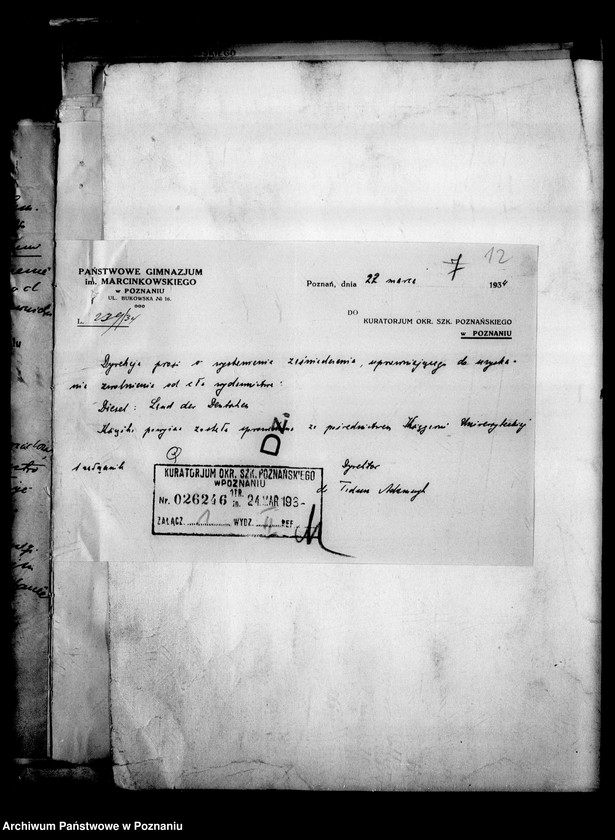 12
7
PAŃSTWOWE GIMNAZJUM
im. MARCINKOWSKIEGO
w POZNANIU
UL. BUKOWSKA № 16.
Poznań, dnia 22 marca 1934
L. 229/34
DO
KURATORJUM OKR. SZK. POZNAŃSKIEGO
w POZNANIU
Dyrekcja prosi o wystawienie zaświadczenia, uprawniającego do uzyska-
nia zwolnienia od cła wydawnictwa:
Diesel: Land der Deutschen
Książka powyższa została sprowadzona za pośrednictwem Księgarni Uniwersyteckiej
DZ.
1 załącznik
Dyrektor
KURATORJUM OKR. SZK. POZNAŃSKIEGO
W POZNANIU
Nr. 026246 24 MAR 193-
ZAŁĄCZ. 1 WYDZ. II REF.
Archiwum Państwowe w Poznaniu